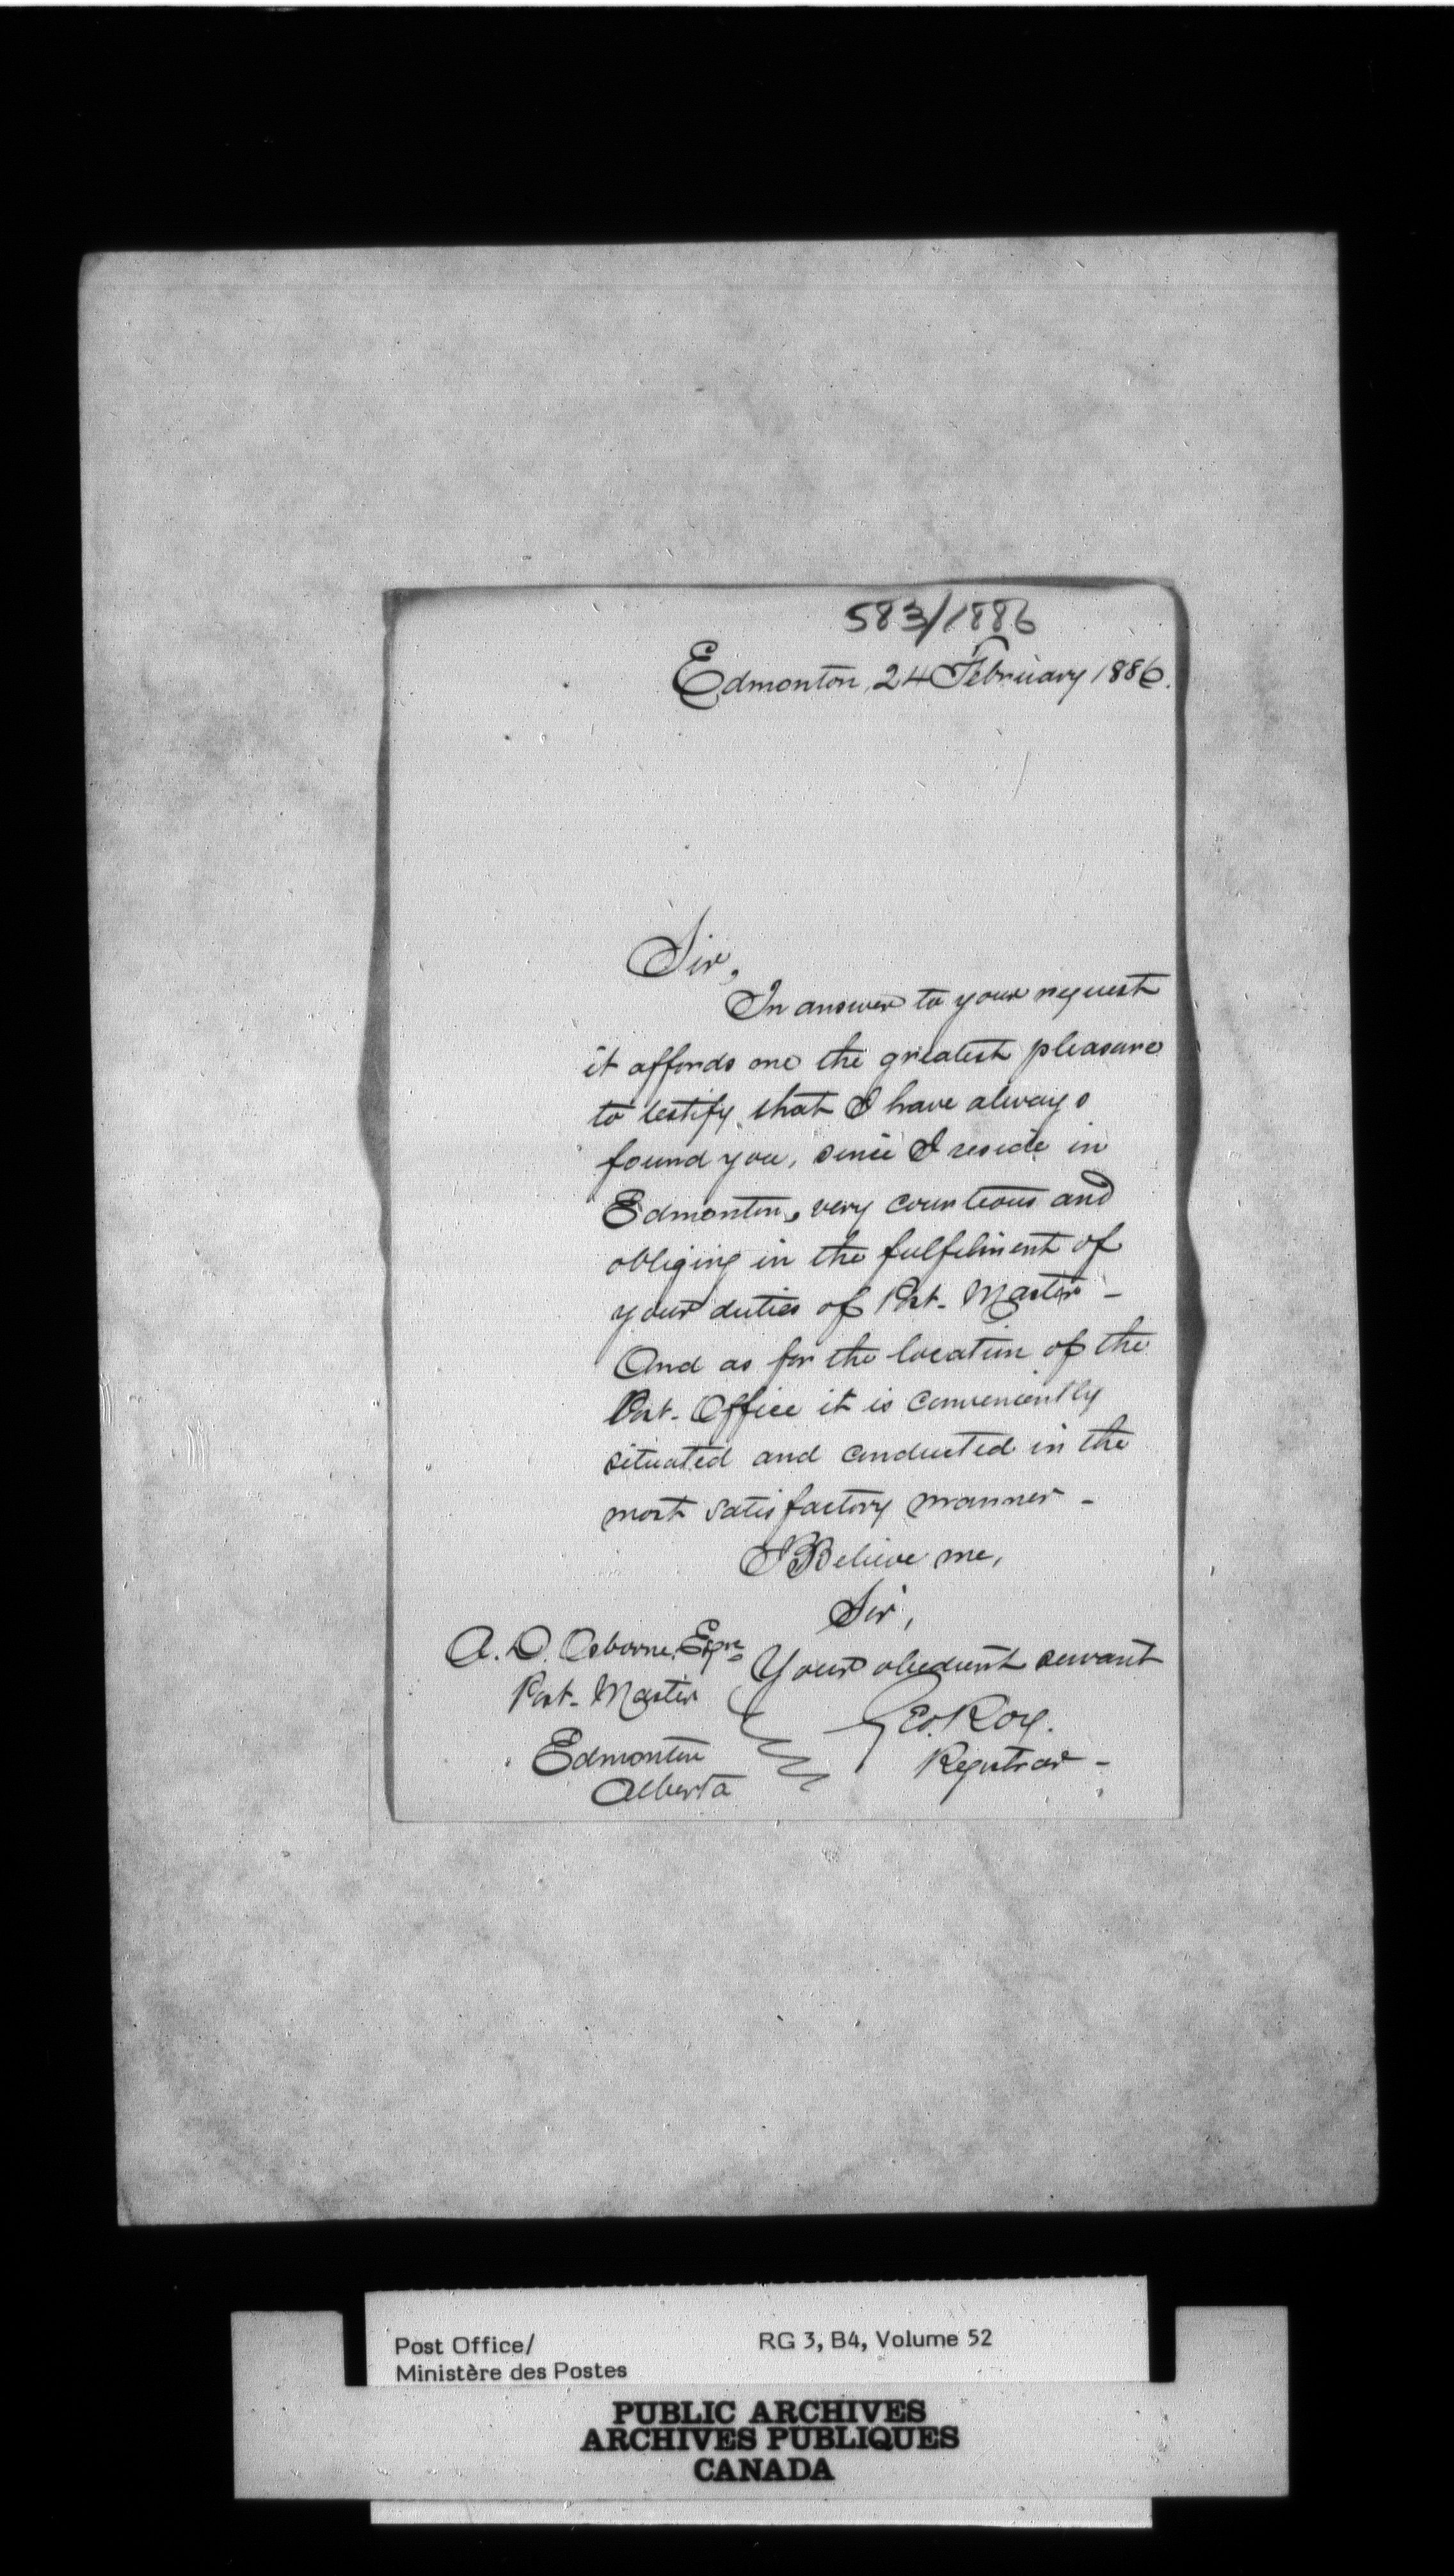 583/1886
Edmonton, 24 February 1886.
Sir,
In answer to your request
it affords me the greatest pleasure
to testify, that I have always
found you, since I reside in
Edmonton, very courteous and
obliging in the fulfilment of
your duties of Post-Master -
And as for the location of the
Post-Office it is conveniently
situated and conducted in the
most satisfactory manner -
Believe me,
Sir,
Your obedient servant
Geo. Roy.
Registrar -
A. D. Osborne, Esqre
Post-Master
Edmonton
Alberta
Post Office/
Ministère des Postes
RG 3, B4, Volume 52
PUBLIC ARCHIVES
ARCHIVES PUBLIQUES
CANADA